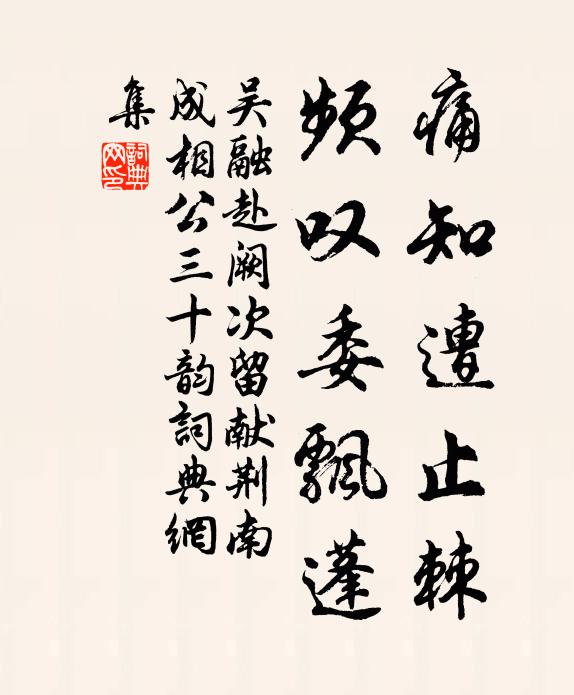 痛知遭止棘
频叹委飘蓬
吴融赴阙次留献荆南
成相公三十韵词典網
集
詞典
网印